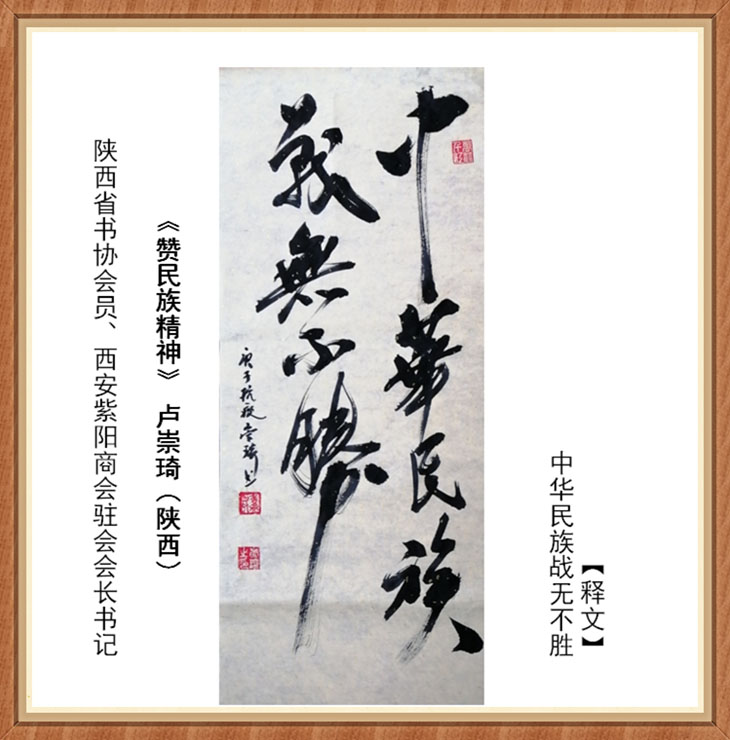 【释文】
中华民族战无不胜
中華民族
戰無不勝
庚子抗疫崇琦书
《赞民族精神》 卢崇琦（陕西）
陕西省书协会员、西安紫阳商会驻会会长书记